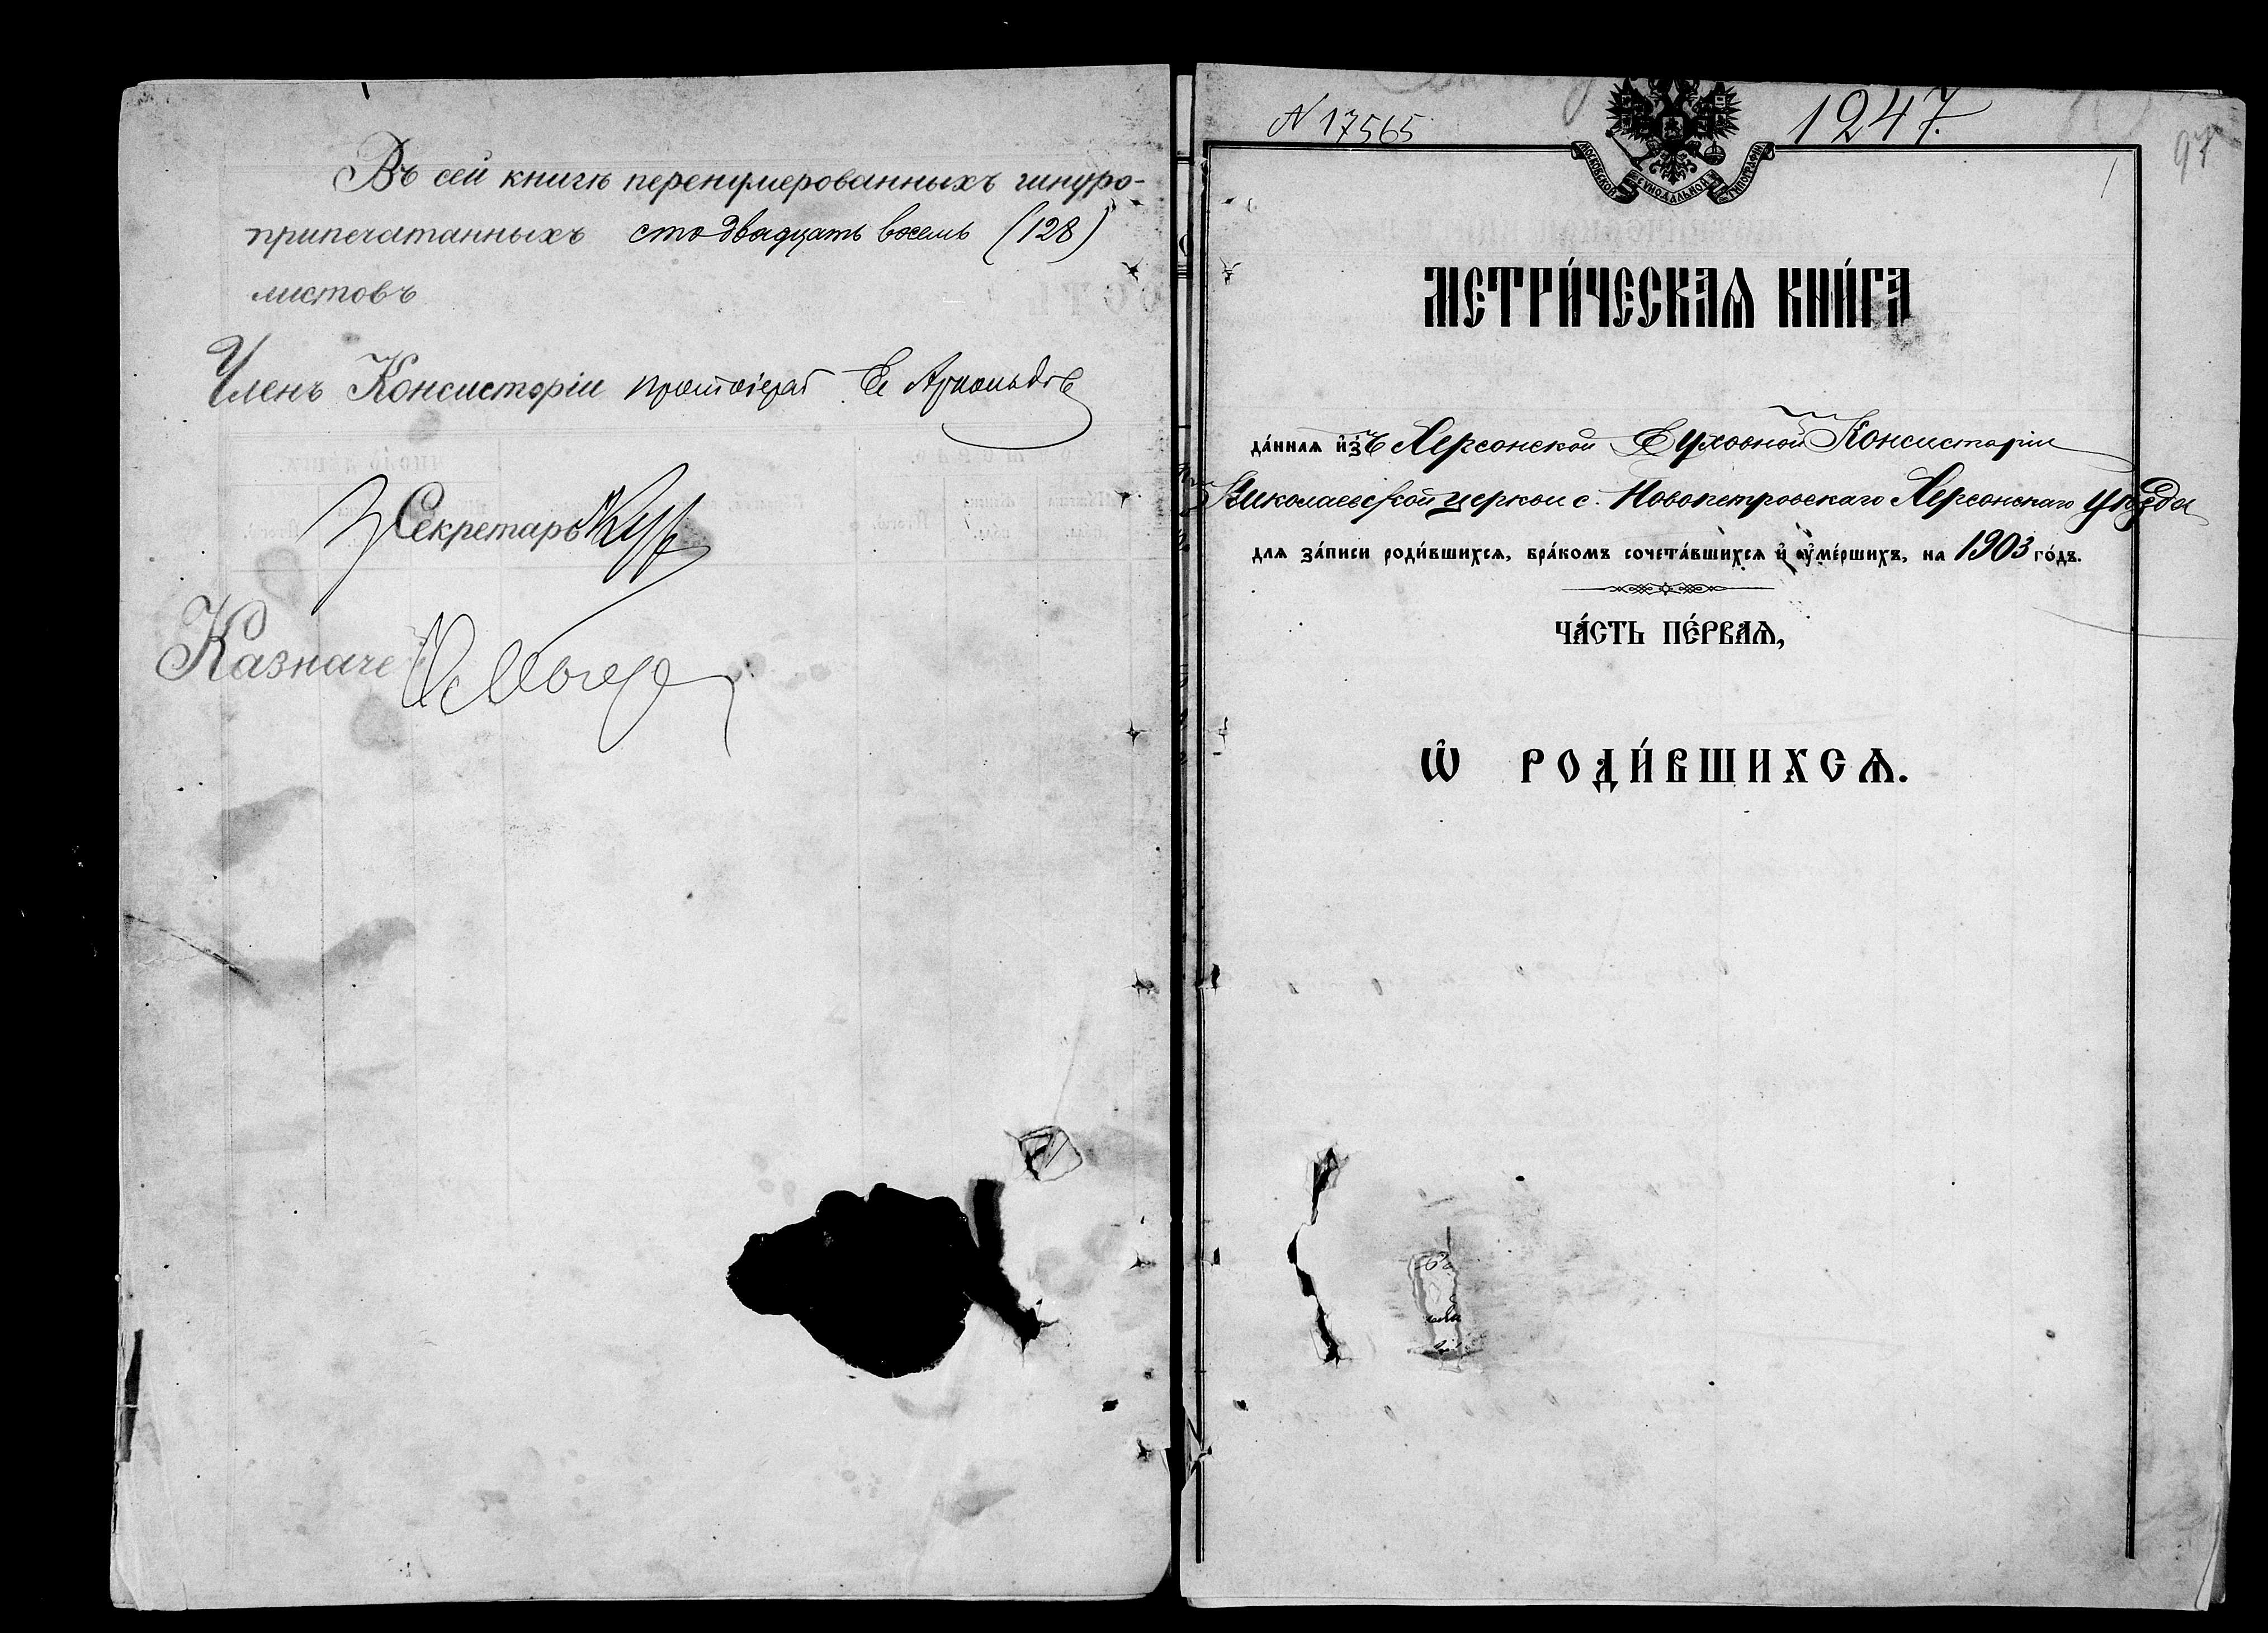 Въ сей книгѣ перенумерованныхъ шнуро-
припечатанныхъ сто двадцать восемь (128)
листовъ
Членъ Консисторіи протоіерей Е. Арнольдовъ
Секретарь
Казначе
N 17565
1247.
97
1
МОСКОВСКОЙ СѴНОДАЛЬНОЙ ТИПОГРАФІИ
МЕТРИ́ЧЕСКАѦ КНИ́ГА
да́ннаѧ и҆зъ Херсонской Духовной Консисторіи
Николаевской церкви с. Новопетровскаго Херсонскаго уѣзда
для за́писи роди́вшихсѧ, бра́комъ сочета́вшихсѧ и҆ ᲂу҆ме́ршихъ, на 1903 го́дъ.
ЧА́СТЬ ПЕ́РВАѦ,
Ѽ РОДИ́ВШИХСѦ.